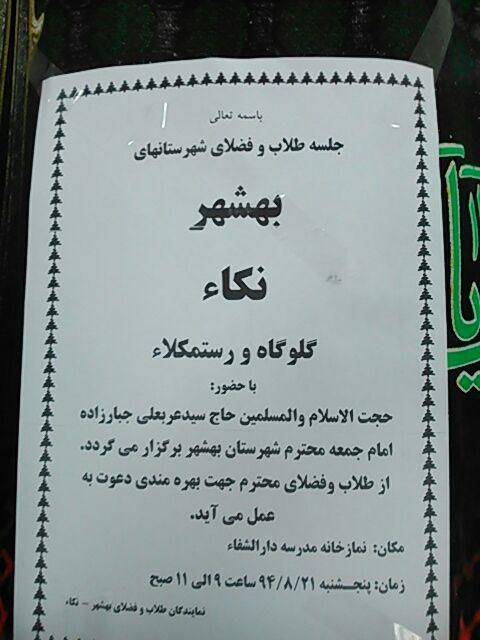 باسمه تعالی
جلسه طلاب و فضلای شهرستانهای
بهشهر
نکاء
گلوگاه و رستمکلاء
با حضور:
حجت الاسلام والمسلمین حاج سیدعربعلی جبارزاده
امام جمعه محترم شهرستان بهشهر برگزار می گردد.
از طلاب وفضلای محترم جهت بهره مندی دعوت به
عمل می آید.
مکان: نمازخانه مدرسه دارالشفاء
زمان: پنجـشنبه ۹۴/۸/۲۱ ساعت ۹ الی ۱۱ صبح
نمایندگان طلاب و فضلای بهشهر – نکاء